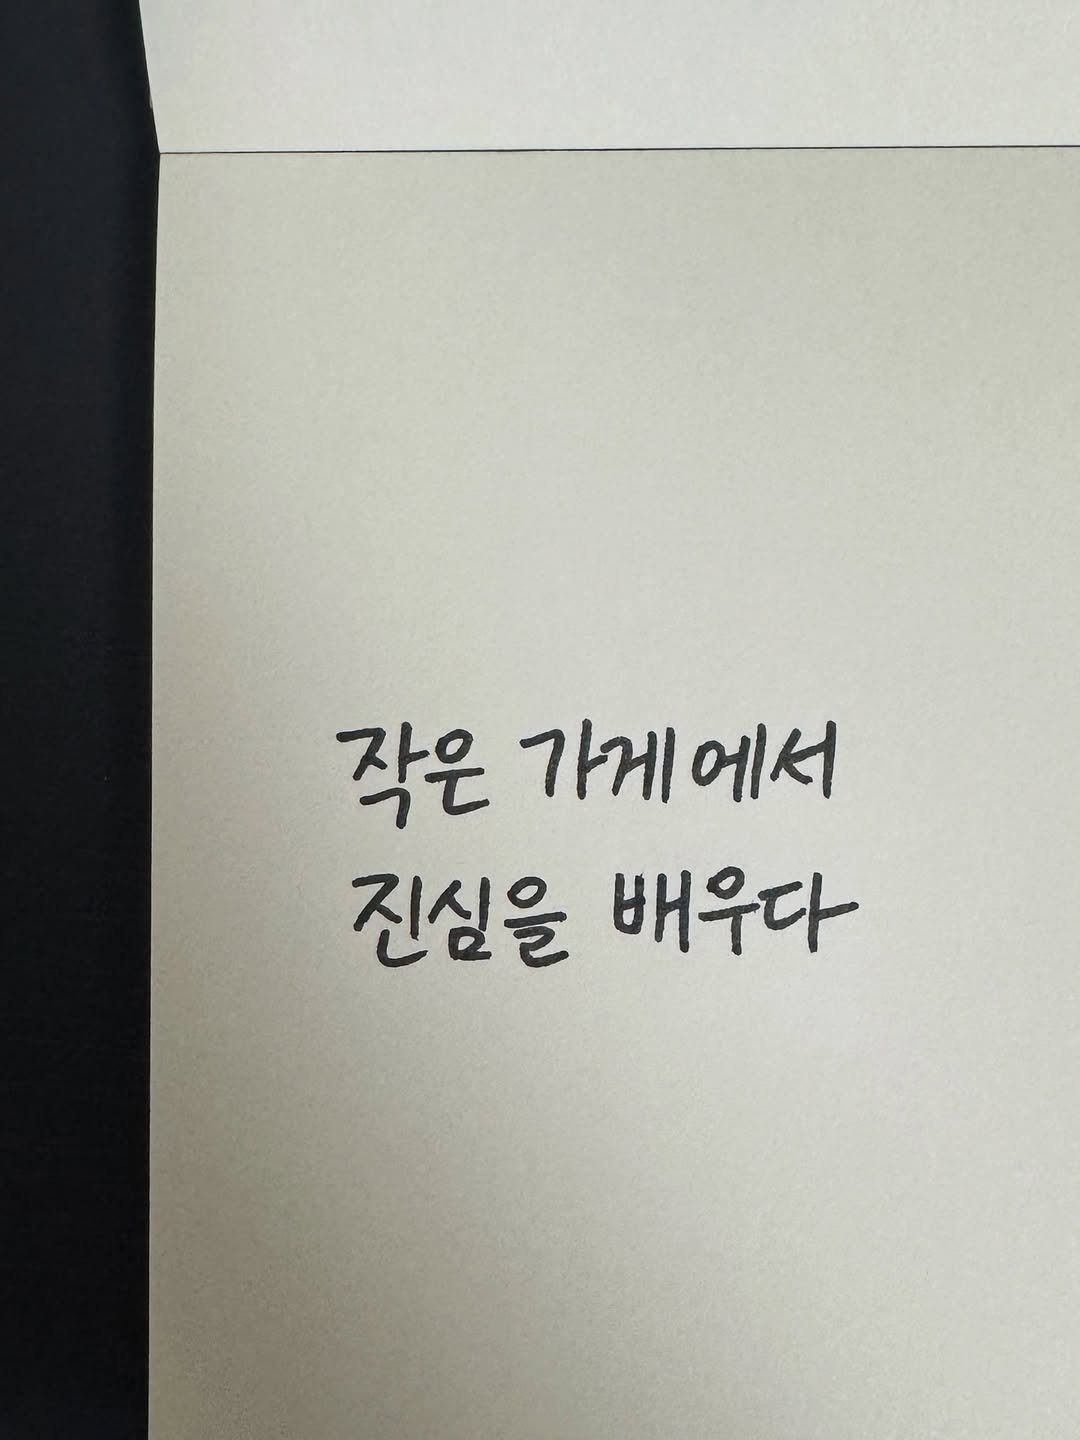 작은 가게에서
진심을 배우다